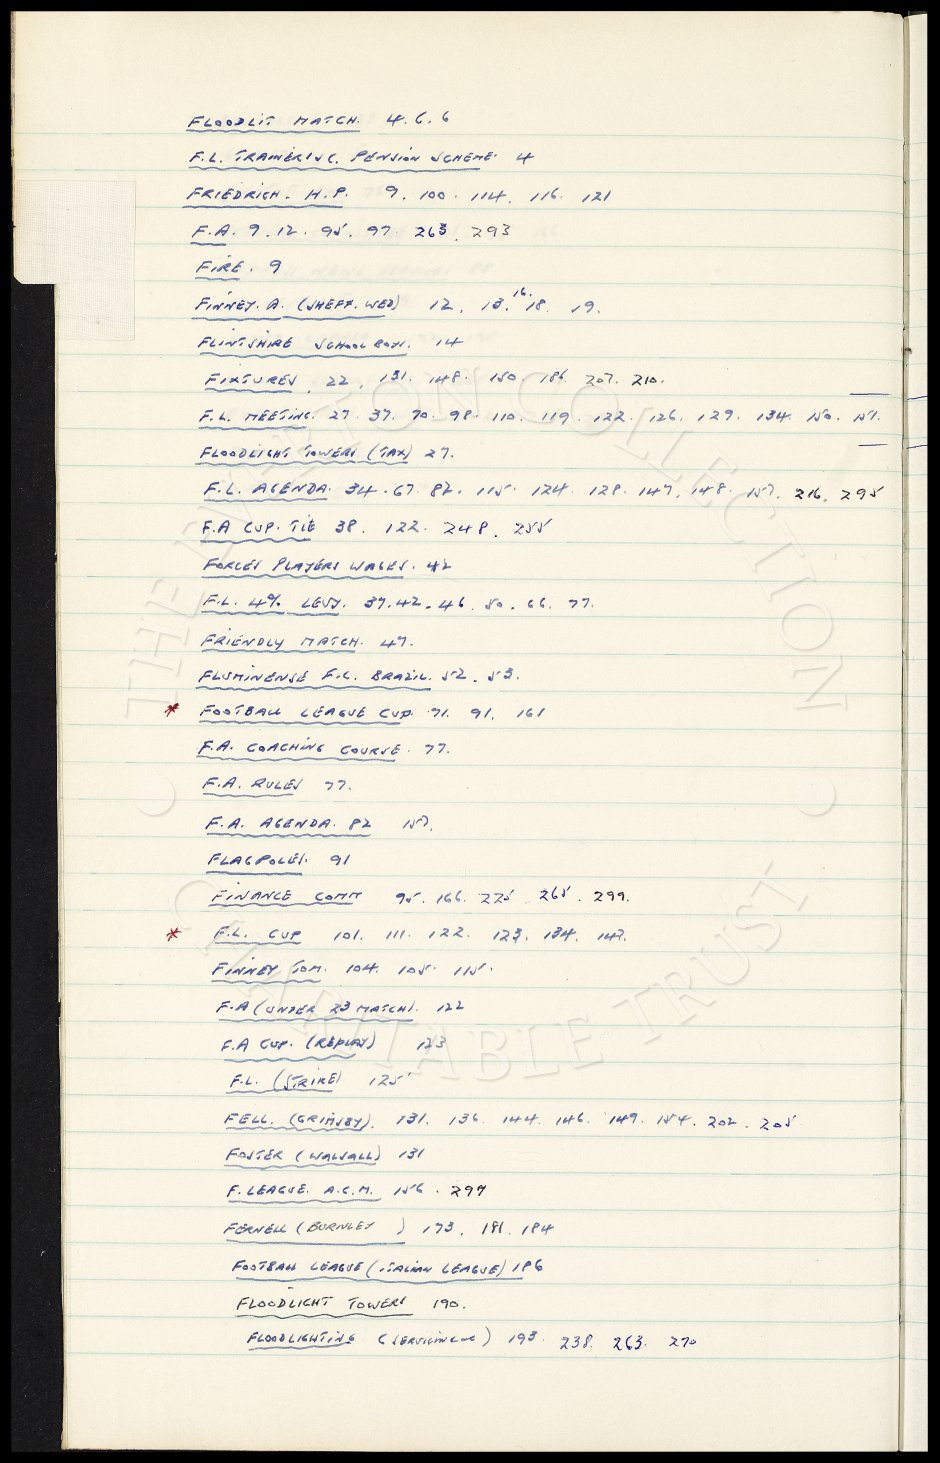 FLOODLIT MATCH. 4. 6. 6
F.L. TRAINERS & C. PENSION SCHEME. 4
FRIEDRICH. H.P. 9. 100. 114. 116. 121
F.A. 9. 12. 95. 97. 263. 293
FIRE. 9
FINNEY. A. (SHEFF. WED) 12. 13. 16. 18. 19.
FLINTSHIRE SCHOOL BOYS. 14
FIXTURES. 22. 131. 148. 150. 186. 207. 210.
F.L. MEETING. 27. 37. 70. 98. 110. 119. 122. 126. 129. 134. 150. 151.
FLOODLIGHT TOWERS (TAX) 27.
F.L. AGENDA. 34. 67. 82. 115. 124. 128. 147. 148. 157. 216. 295
F.A CUP. TIE 38. 122. 248. 255
FORCES PLAYERS WAGES. 42
F.L. 4% LEVY. 37. 42. 46. 50. 66. 77.
FRIENDLY MATCH. 47.
FLUMINENSE F.C. BRAZIL. 52. 53.
* FOOTBALL LEAGUE CUP. 71. 91. 161
F.A. COACHING COURSE. 77.
F.A. RULES 77.
F.A. AGENDA. 82 157.
FLAGPOLES. 91
FINANCE COMM 95. 166. 225. 265. 299.
* F.L. CUP 101. 111. 122. 123. 134. 147.
FINNEY TOM. 104. 105. 115.
F.A (UNDER 23 MATCH). 122
F.A CUP. (REPLAY) 123
F.L. (STRIKE) 125
FELL. (GRIMSBY). 131. 136. 144. 146. 149. 154. 202. 205
FOSTER (WALSALL) 131
F. LEAGUE. A.G.M. 156. 297
FERNELL (BURNLEY ) 173. 181. 184
FOOTBALL LEAGUE (ITALIAN LEAGUE) 186
FLOODLIGHT TOWERS 190.
FLOODLIGHTING ( ) 193. 238. 263. 270
THE EVERTON COLLECTION
CHARITABLE TRUST